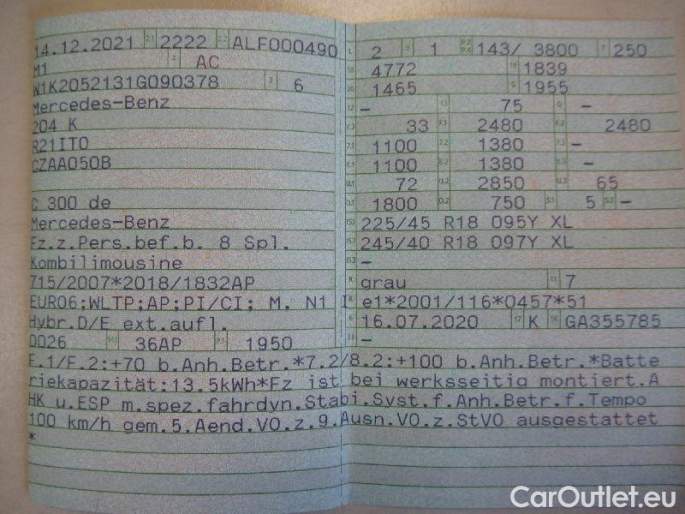 14.12.2021 2222 ALF000490
M1 AC
W1K2052131G090378 6
Mercedes-Benz
204 K
R21IT0
CZAA050B
C 300 de
Mercedes-Benz
Fz.z.Pers.bef.b. 8 Spl.
Kombilimousine
715/2007*2018/1832AP
EURO6;WLTP;AP;PI/CI; M, N1 I
Hybr.D/E ext.aufl.
0026 36AP 1950
2 1 143/ 3800 250
4772 1839
1465 1955
- 75 -
33 2480 2480
1100 1380 -
1100 1380 -
72 2850 65
1800 750 5 -
225/45 R18 095Y XL
245/40 R18 097Y XL
-
grau 7
e1*2001/116*0457*51
16.07.2020 K GA355785
-
F.1/F.2:+70 b.Anh.Betr.*7.2/8.2:+100 b.Anh.Betr.*Batte
riekapazität:13.5kWh*Fz ist bei werksseitig montiert.A
HK u.ESP m.spez.fahrdyn.Stabi.Syst.f.Anh.Betr.f.Tempo
100 km/h gem.5.Aend.VO.z.9.Ausn.VO.z.StVO ausgestattet
*
CarOutlet.eu